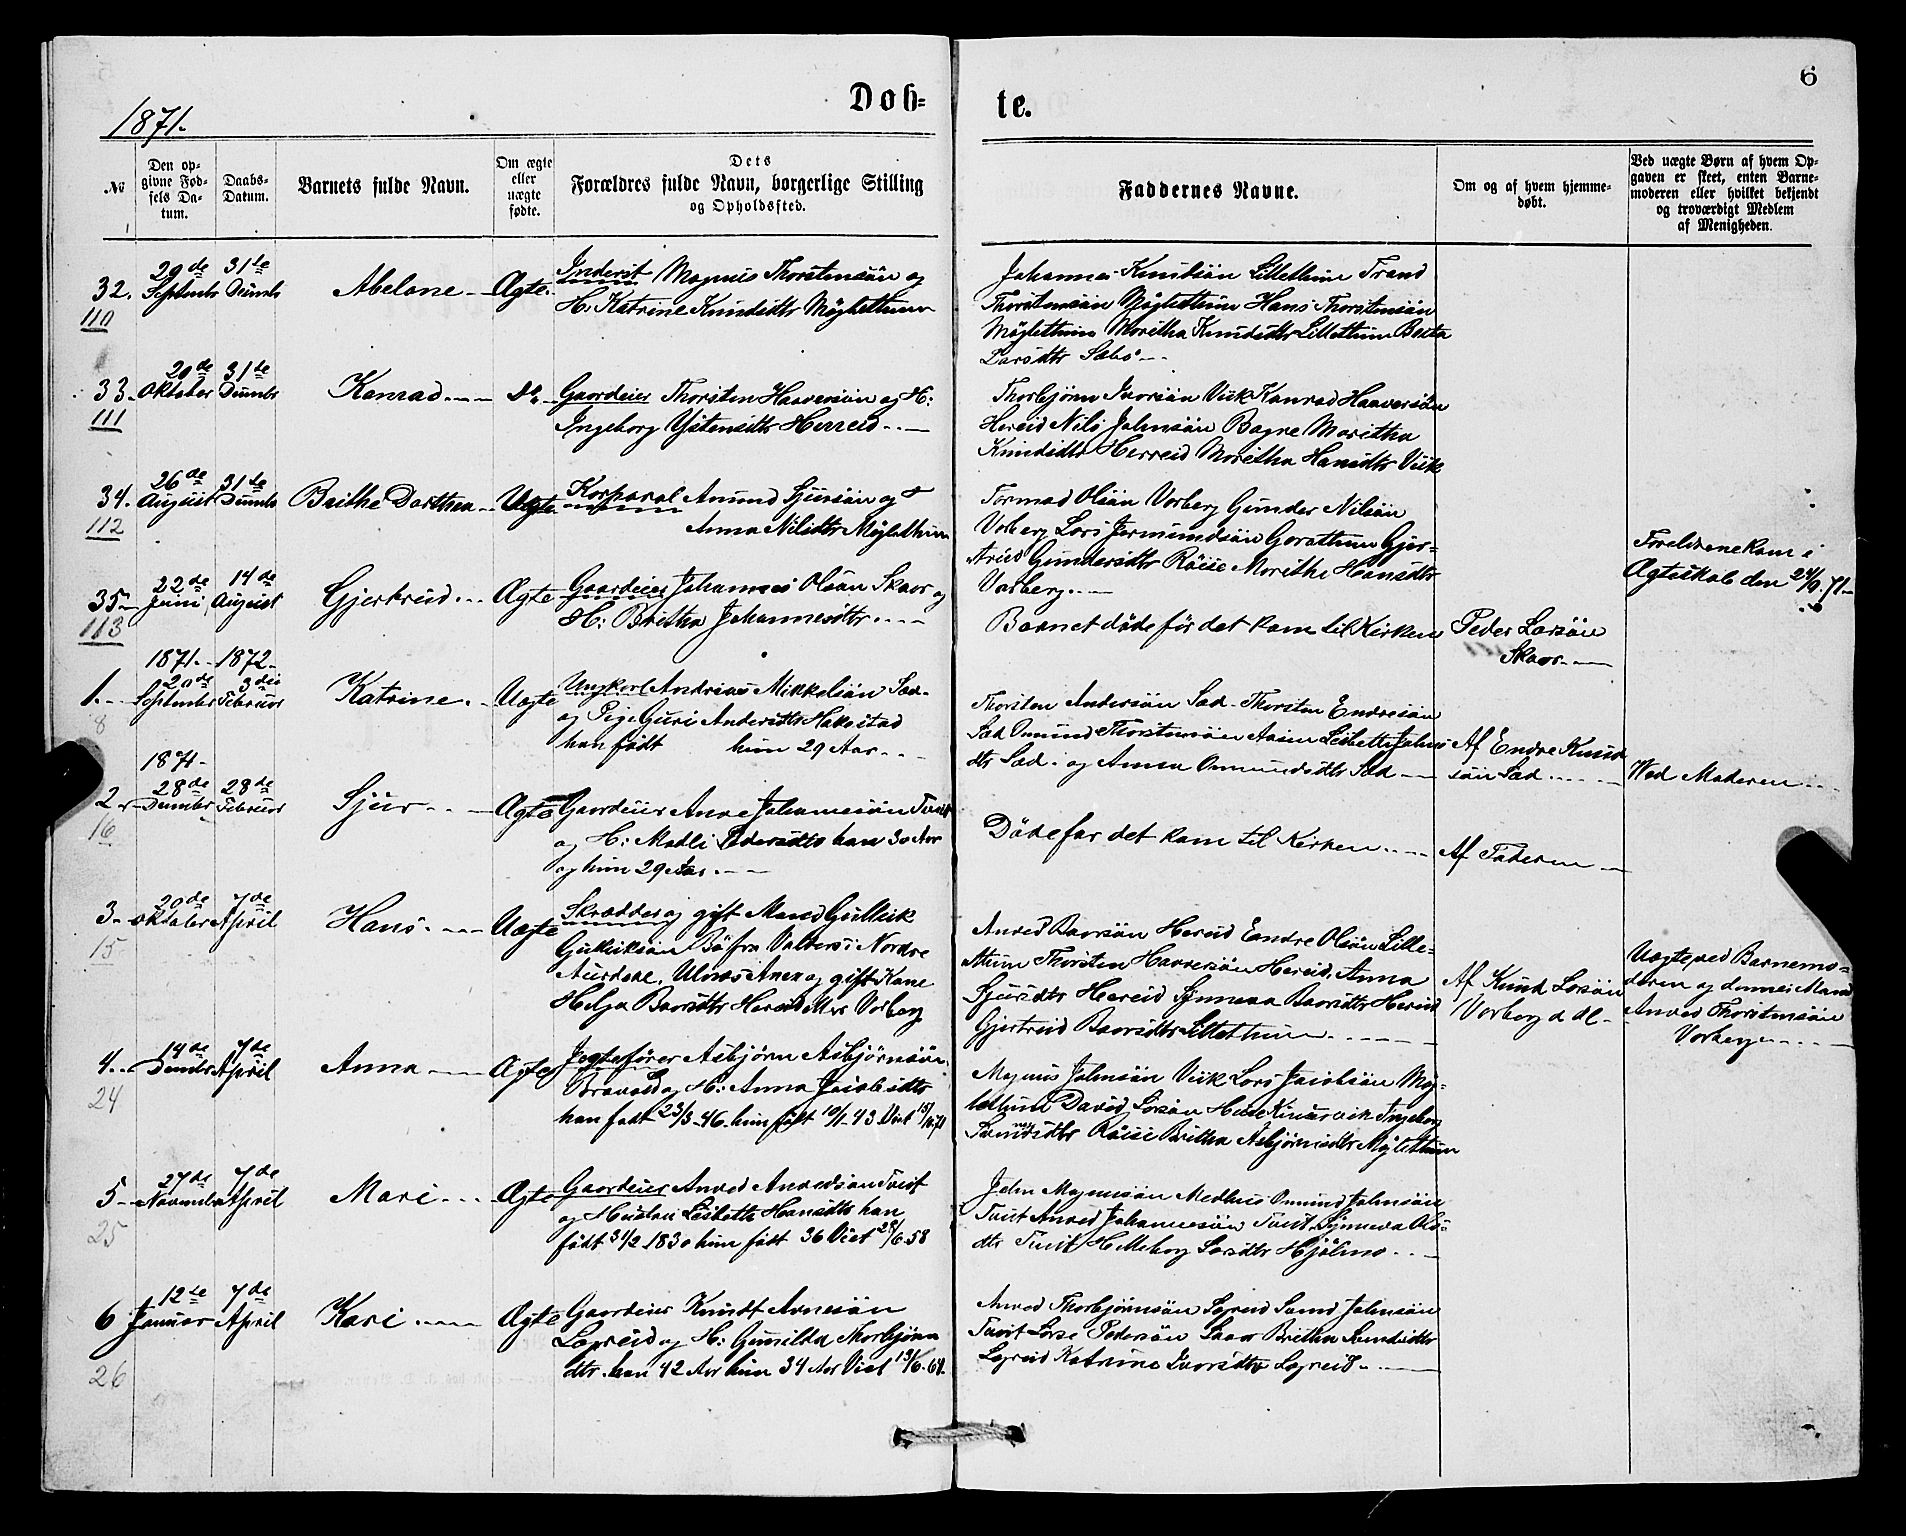 6
Dob=
te.
1871.
№
Den op-
givne Fød-
sels Da-
tum.
Daabs-
Datum.
Barnets fulde Navn.
Om ægte
eller
uægte
fødte.
Dets
Forældres fulde Navn, borgerlige Stilling
og Opholdssted.
Faddernes Navne.
Om og af hvem hjemme-
døbt.
Ved uægte Børn af hvem Op-
gaven er skeet, enten Barne-
moderen eller hvilket bekjendt
og troværdigt Medlem
af Menigheden.
32. 29de Septembr 31te Dcmbr Abelone Ægte. Inderst Magnus Thorstensøn og
110
H: Katrine Knudsdtr Møglethun
Johannes Knudsøn Lillethun Trond
Thorstensøn Møglethun Hans Thorstensøn
Møglethun Maritha Knudsdtr Lillethun Berta
Larsdtr Sæbø
33. 20de Oktober 31te Dcmbr Konrad Do. Gaardeier Thorsten Haaversøn og H:
111
Ingeborg Ystensdtr Herreid
Thorbjørn Ivorsøn Viik Konrad Haaversøn
Hereid Nils Johnsøn Bagne Maritha
Knudsdtr Herreid Maritha Hansdtr Viik
34. 26de August 31te Dcmbr Brithe Dorthea Uægte Korporal Amund Sjursøn og
112
Anna Nilsdtr Møglethun
Tormod Olsøn Vorberg Gunder Nilsøn
Vorberg Lars Jermundsøn Garathun Gjer=
trud Gundersdtr Røise Marithe Hansdtr
Vorberg.
Foreldrene kom i
Ægteskab den 24/9. 71.
35 22de Juni 14de August Gjertrud Ægte Gaardeier Johannes Olsøn Skaar og
113
H: Britha Johannesdtr
Barnet døde før det kom til Kirken
Peder Larsøn
Skaar
1871. 1872.
1. 20de September 3die Februar Katrine Uægte Ungkarl Andreas Mikkelsøn Sæd
8
og Pige Guri Andersdtr Hakestad
han født hun 29 Aar
Thorsten Andersøn Sæd Thorsten Endresøn
Sæd Omund Thorstensøn Aasen Lisbette Johns
dtr Sæd og Anna Ommundsdtr Sæd
Af Endre Knud
søn Sæd
Ved Moderen
1871.
2 28de Dcmbr 28de Februar Sjur Ægte Gaardeier Arne Johannesøn Tveit
16
og H: Madli Pedersdtr han 30 Aar
og hun 29 Aar.
Døde før det kom til Kirken
Af Faderen
3 20de Oktober 7de April Hans Uægte Skrædder og gift Mand Gulleik
15
Gulleiksøn Bø fra Valders i Nordre
Aurdal, Ulnæs Anex og gift Kone
Helga Baarsdtr Hereid Vorberg
Anved Baarsøn Hereid Endre Olsøn Lille=
thun Thorsten Haaversøn Hereid, Anna
Sjursdtr Hereid Synneva Baarsdtr Hereid
Gjertrud Baarsdtr Lillethun
Af Knud Larsøn
Vorberg
Uægte ved Barnemo=
deren og dennes Mand
Anved Thorstensøn
Vorberg
4. 14de Dcmbr 7de April Anna Ægte Jegtefører Asbjørn Asbjørnsøn
24
Bravold og H: Anna Jacobsdtr
han født 23/3-46. hun født 10/1-43 Viet
Magnus Johnsøn Viik Lars Jacobsøn Møg=
lethun David Larsøn Kinsarvik Ingeborg
Røise Britha Asbjørnsdtr Møglethun
5 27de November 7de April Mari Ægte Gaardeier Anved Anvedsøn Tveit
25
og Hustru Lisbette Hansdtr han
født 31/2-1830 hun født 36 Viet 28/6.58
John Magnusøn Medhus Omund Johnsøn
Tveit Anved Johannesøn Tveit Synneva Ols=
dtr Tveit Helleborg Larsdtr Hjølmo
6 12te Januar 7de April Kari Ægte Gaardeier Knudt Arnesøn
26
Legreid og H: Gunilda Thorbjørns
dtr. han 42 Aar hun 34 Aar Viet 13/6-64.
Anved Thorbjørnsøn Legreid Johnsøn
Tveit Larse Pedersøn Saar Britha
Legreid Katrine Ivorsdtr Legreid